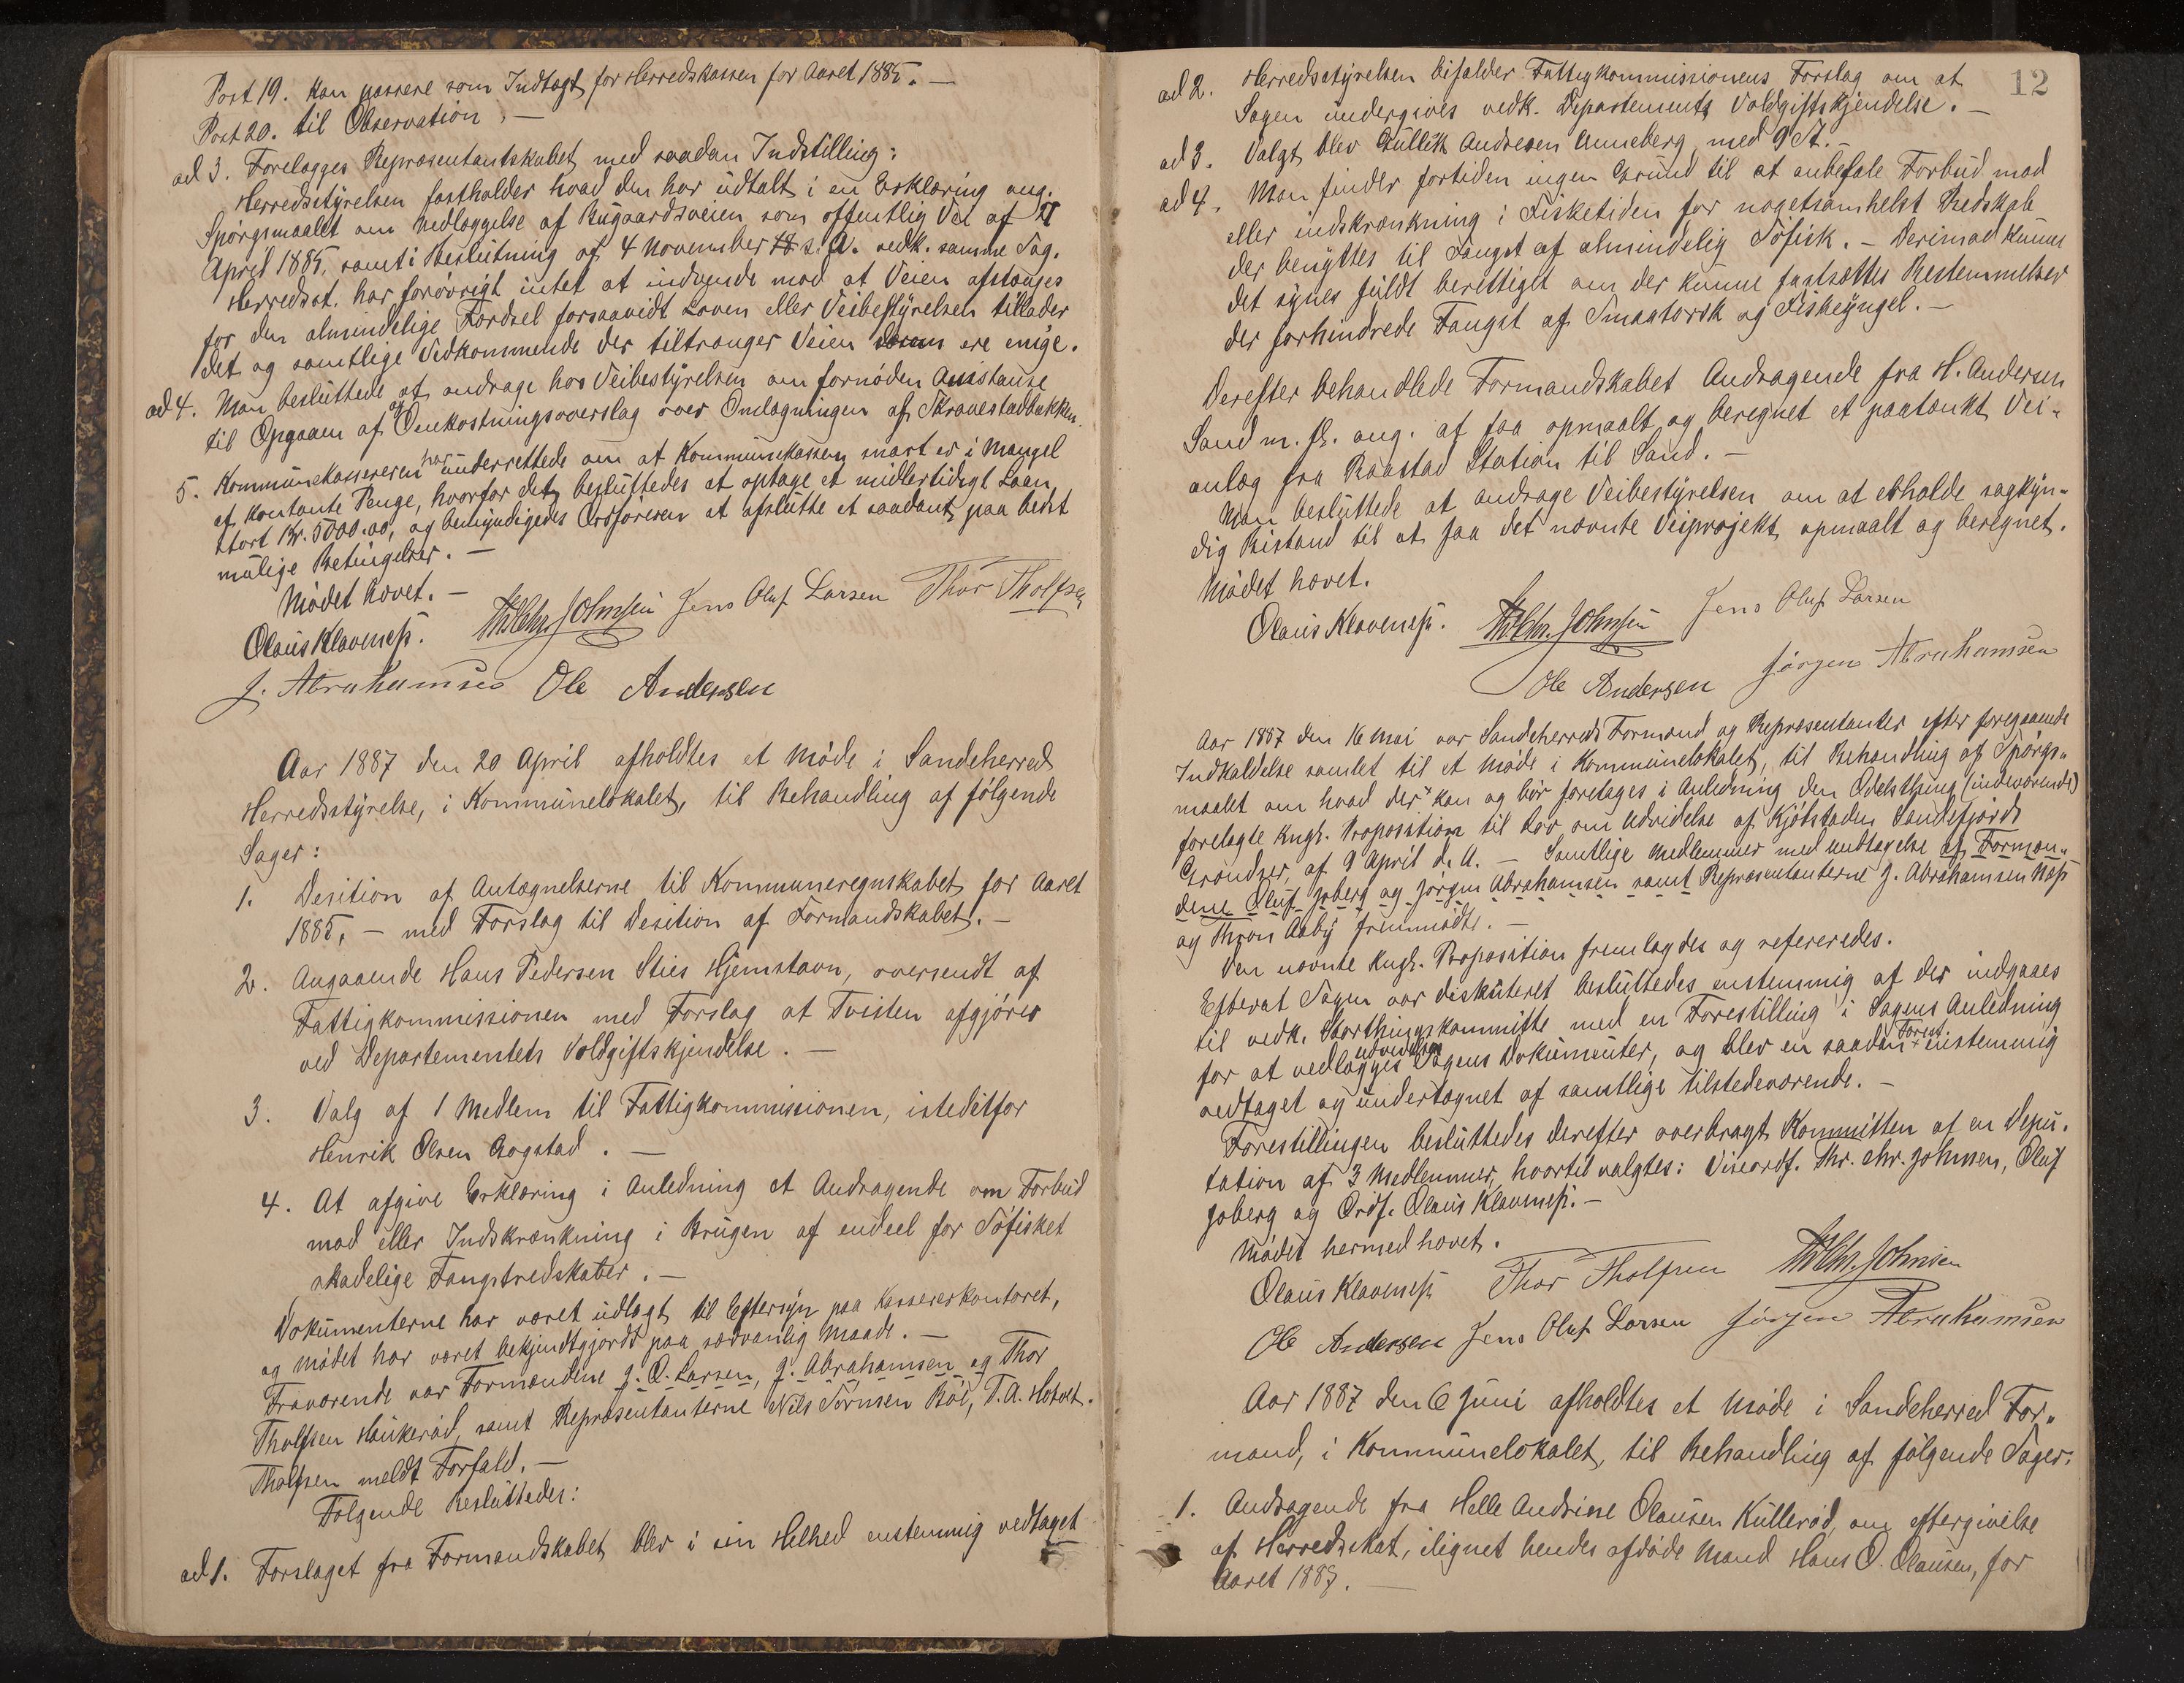 Post 19. Kan passere som Indtægt for Herredskassen for Aaret 1885. —
Post 20. til Observation. —
ad 3. Forelægges Repræsentantskabet med saadan Indstilling:
Herredsstyrelsen fastholder hvad den har udtalt i en Erklæring ang.
Spörgsmaalet om Nedlæggelse af Bugaardsveien som offentlig Vei af
April 1885, samt i Beslutning af 4 November s. A. vedk. samme Sag.
Herredsst. har forøvrigt intet at indvende mod at Veien afstænges
for den almindelige Færdsel forsaavidt Loven eller Veibestyrelsen tillader
det og samtlige Vedkommende der tiltrænger Veien ere enige.
ad 4. Man besluttede at andrage hos Veibestyrelsen om fornöden Assistanse
til Opgaven af og Omkostningsoverslag over Omlægningen af Skravestadbakken.
5. Kommunekassereren har underrettede om at Kommunekassen snart er i Mangel
af kontante Penge, hvorfor det besluttedes at optage et midlertidigt Laan
stort Kr. 5000.00, og bemyndigedes Ordföreren at afslutte et saadant paa bedst
mulige Betingelser. —
Mödet hævet. —
Olaus Klavenesß. Th. Chr. Johnsen Jens Oluf Larsen Thor Tholfsen
J. Abrahamsen Ole Andersen
Aar 1887 den 20 April afholdtes et Möde i Sandeherred
Herredsstyrelse, i Kommunelokalet, til Behandling af fölgende
Sager:
1. Desition af Antegnelserne til Kommuneregnskabet for Aaret
1885, — med Forslag til Desition af Formandskabet. —
2. Angaaende Hans Pedersen Sties Hjemstavn, oversendt af
Fattigkommissionen med Forslag at Tvisten afgjöres
ved Departementets Voldgiftskjendelse. —
3. Valg af 1 Medlem til Fattigkommissionen, istedetfor
Henrik Olsen Gogstad. —
4. At afgive Erklæring i Anledning et Andragende om Forbud
mod eller Indskrænkning i Brugen af endeel for Söfisket
skadelige Fangstredskaber. —
Dokumenterne har været udlagt til Eftersyn paa Kassererkontoret,
og Mödet har været bekjendtgjordt paa sædvanlig Maade. —
Fraværende var Formændene J. O. Larsen, J. Abrahamsen og Thor
Tholfsen Haukeröd, samt Repræsentanterne Nils Sörensen Böe, T. A. Hotvet.
Tholfsen meldt Forfald. —
Fölgende Besluttedes:
ad 1. Forslaget fra Formandskabet blev i sin Helhed enstemmig vedtaget
12
ad 2. Herredsstyrelsen bifalder Fattigkommissionens Forslag om at
Sagen undergives vedk. Departements Voldgiftskjendelse. —
ad 3. Valgt blev Gullik Andresen Unneberg med 9 St. —
ad 4. Man finder fortiden ingen Grund til at anbefale Forbud mod
eller indskrænkning i Fisketiden for nogetsomhelst Redskab
der benyttes til Fangst af almindelig Söfisk. — Derimod kunne
det synes fuldt berettiget om der kunne fastsættes Bestemmelser
der forhindrede Fangst af Smaatorsk og Fiskeyngel. —
Derefter behandlede Formandskabet Andragende fra H. Andersen
Sand m. fl. ang. at faa opmaalt og beregnet et paatænkt Vei-
anlæg fra Raastad Station til Sand. —
Man besluttede at andrage Veibestyrelsen om at erholde sagkyn-
dig Bistand til at faa det nævnte Veiprosjekt opmaalt og beregnet.
Mödet hævet.
Olaus Klavenesß. Th. Chr. Johnsen Jens Oluf Larsen
Ole Andersen Jörgen Abrahamsen
Aar 1887 den 16 Mai var Sandeherreds Formænd og Repræsentanter efter foregaaende
Indkaldelse samlet til et Möde i Kommunelokalet, til Behandling af Spörgs-
maalet om hvad der kan og bör foretages i Anledning den Odelsthing (indeværende)
forelagte Kngl. Proposition til Lov om Udvidelse af Kjöbstaden Sandefjords
Grændser, af 9 April d. A. — Samtlige Medlemmer med undtagelse af Formæn-
dene Oluf Joberg og Jörgen Abrahamsen samt Repræsentanterne J. Abrahamsen Næs
og Thron Aaby fremmödte. —
Den nævnte Kngl. Proposition fremlagdes og refereredes.
Efterat Sagen var diskuteret besluttedes enstemmig at der indgaaes
til vedk. Storthingskommitte med en Forestilling i Sagens Anledning
for at vedlægges Sagens Dokumenter, og blev en saadan Forest. enstemmig
vedtaget og undertegnet af samtlige tilstedeværende. —
Forestillingen besluttedes derefter overbragt Kommitten af en Depu-
tation af 3 Medlemmer, hvortil valgtes: Viseordf. Thr. Chr. Johnsen, Oluf
Joberg og Ordf. Olaus Klavenesß. —
Mödet hermed hævet.
Olaus Klavenesß Thor Tholfsen Th. Chr. Johnsen
Ole Andersen Jens Oluf Larsen Jörgen Abrahamsen
Aar 1887 den 6 Juni afholdtes et Möde i Sandeherred For-
mænd, i Kommunelokalet, til Behandling af fölgende Sager:
1. Andragende fra Helle Andrine Olausen Kulleröd, om eftergivelse
af Herredsskat, ilignet hendes afdöde Mand Hans O. Olausen, for
Aaret 1887. —